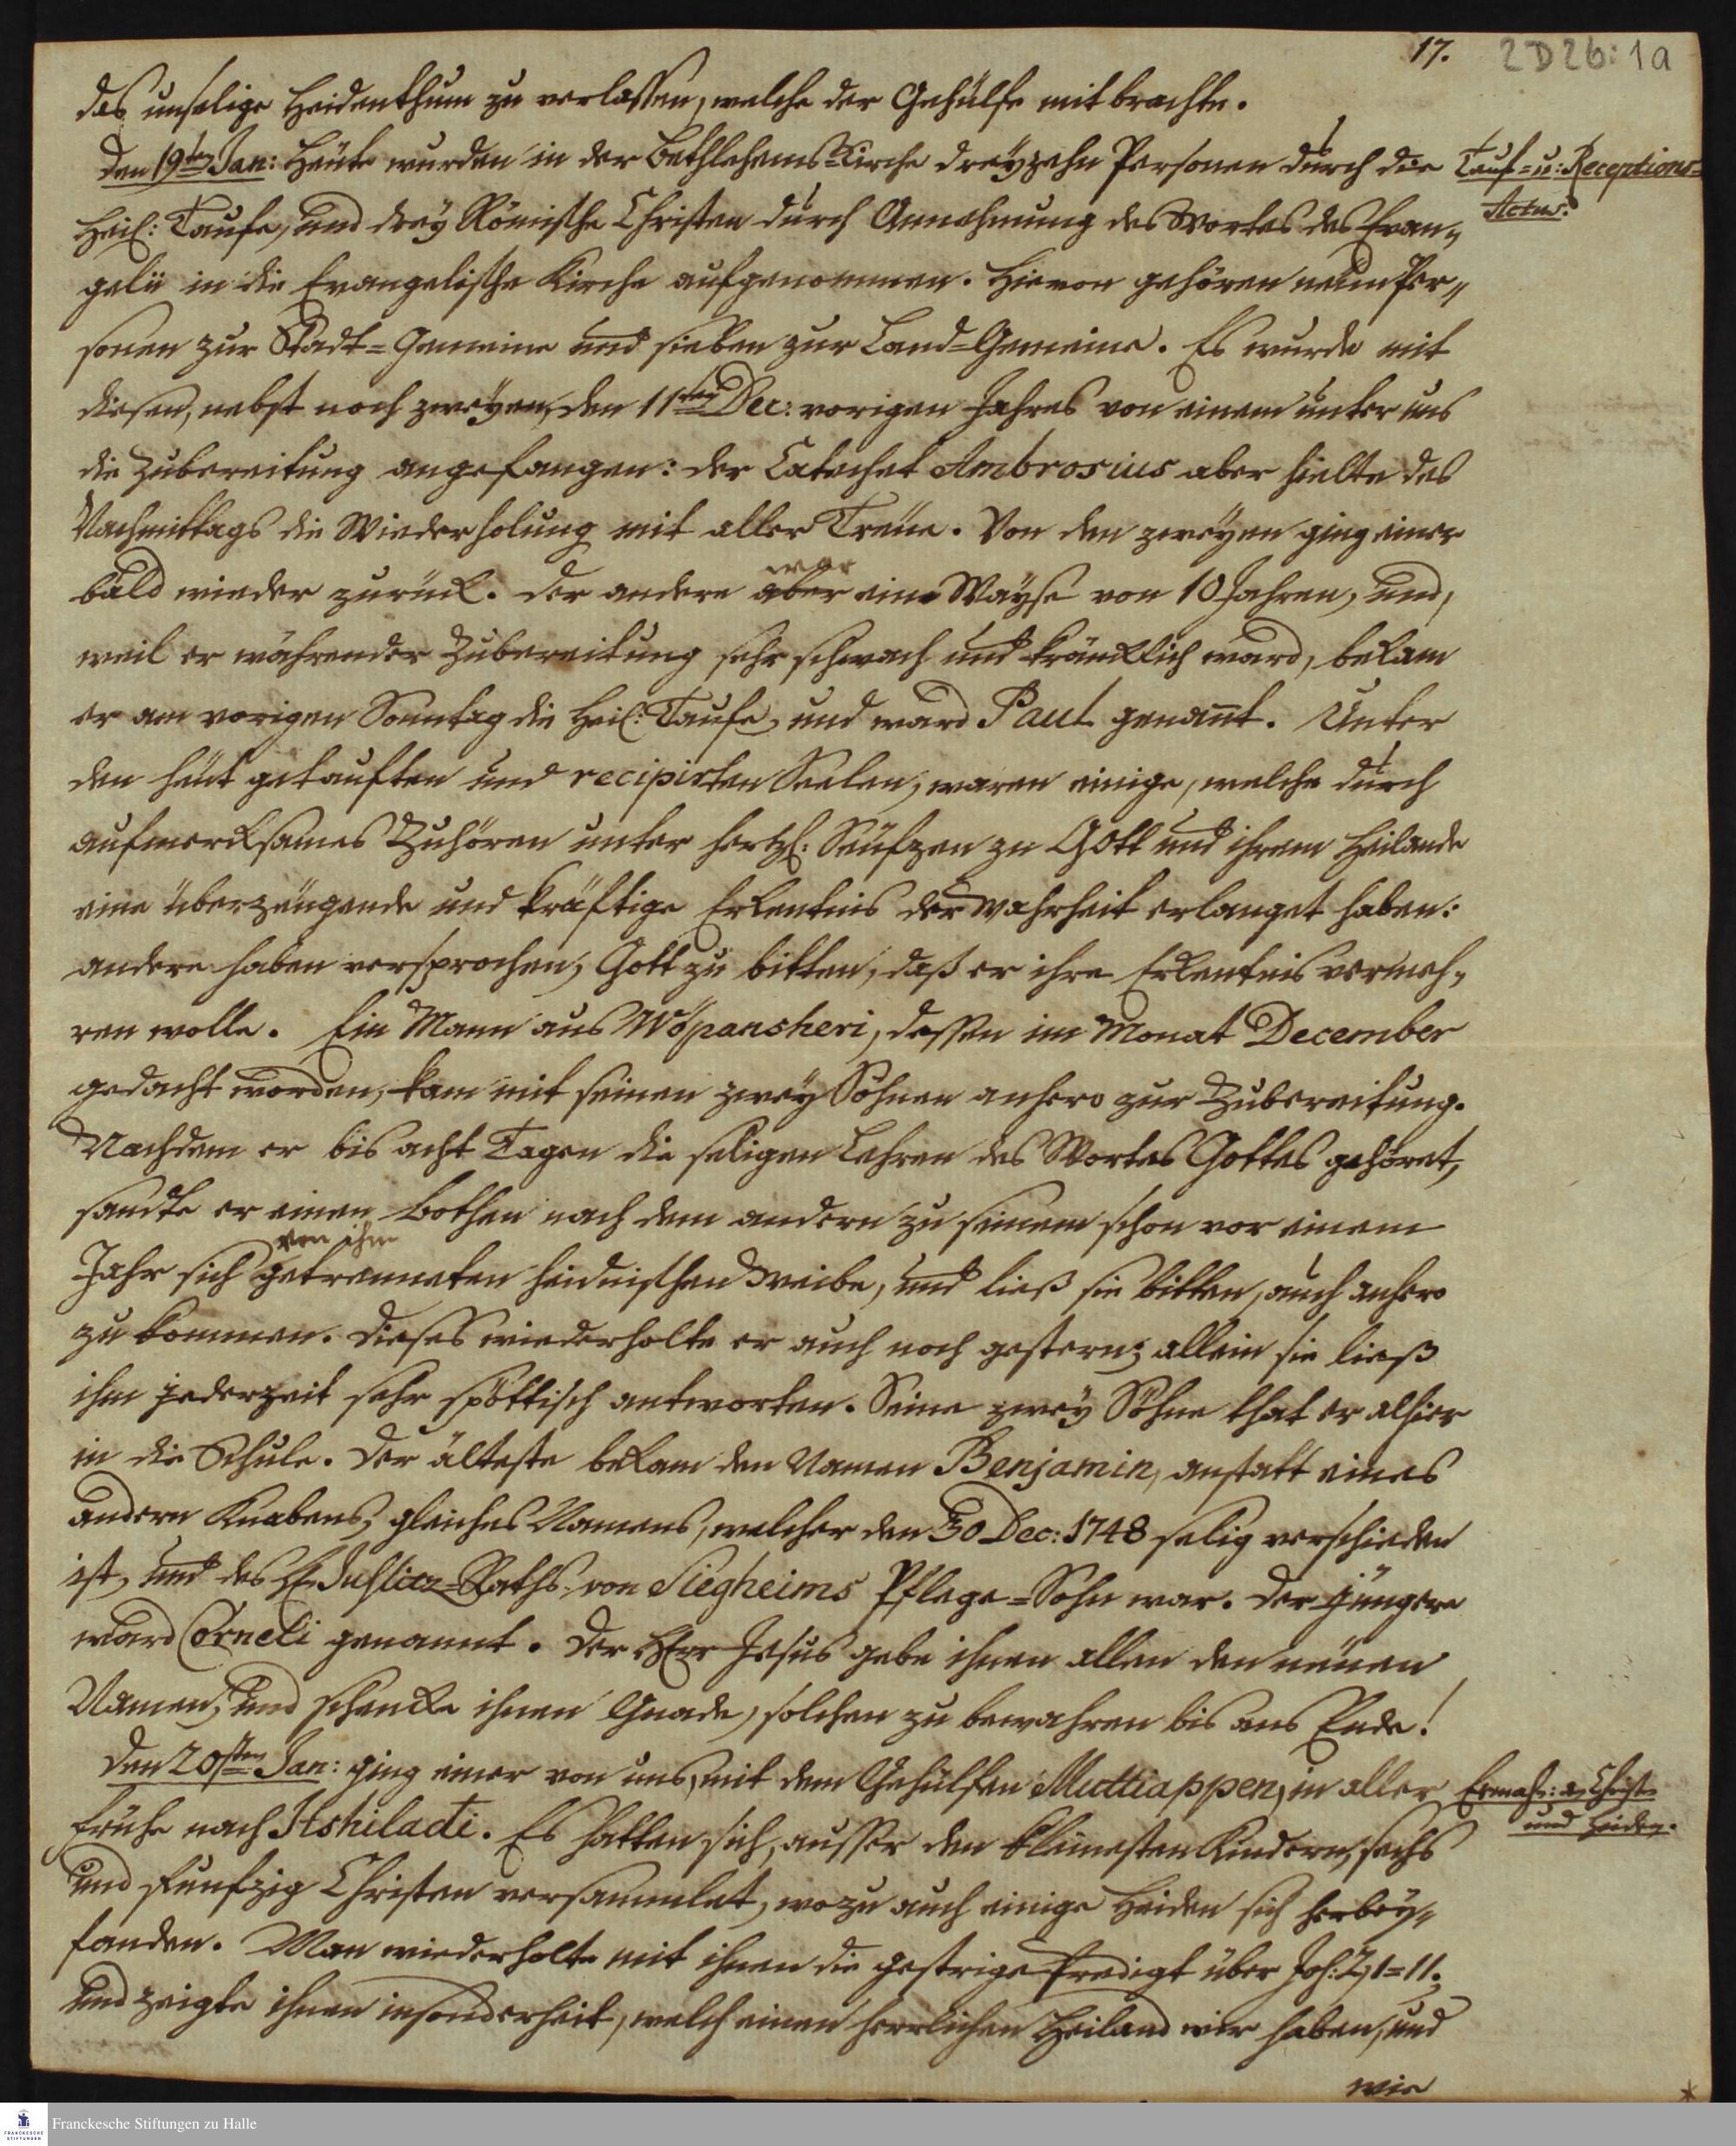 17.
2D26:1a
das unselige Heidenthum zu verlassen, welche der Gehülfe mitbrachte.
Den 19ten Jan: Heute wurden in der Bethlehems-Kirche dreyzehn Personen durch die
Tauf= u: Receptions=
Actus.
Heil: Taufe, und drey Römische Christen durch Annehmung des Wortes des Evan=
gelii in die Evangelische Kirche aufgenommen. Hievon gehören neun Per=
sonen zur Stadt=Gemeine und sieben zur Land=Gemeine. Es wurde mit
diesen, nebst noch zweyen, den 11ten Dec: vorigen Jahres von einem unter uns
die Zubereitung angefangen: der Catechet Ambrosius aber hielte des
Nachmittags die Wiederholung mit aller Treue. Von den zweyen ging einer
bald wieder zurück. Der andere aber war eine Wayse von 10 Jahren, und,
weil er währender Zubereitung sehr schwach und kräncklich ward, bekam
er am vorigen Sonntag die Heil: Taufe, und ward Paul genannt. Unter
den heut getauften und recipirten Seelen, waren einige, welche durch
aufmercksames Zuhören unter hertzl: Seufzen zu Gott und ihrem Heilande
eine überzeugende und kräftige Erkentnis der Wahrheit erlanget haben:
andere haben versprochen, Gott zu bitten, daß er ihre Erkentnis vermeh=
ren wolle. Ein Mann aus Wöpansheri, dessen im Monat December
gedacht worden, kam mit seinen zwey Söhnen anhero zur Zubereitung.
Nachdem er bis acht Tagen die seligen Lehren des Wortes Gottes gehöret,
sandte er einen Bothen nach dem andern zu seinem schon vor einem
Jahr sich von ihm getrenneten heidnischen Weibe, und ließ sie bitten, auch anhero
zu kommen. Dieses wiederholte er auch noch gestern; allein sie ließ
ihm jederzeit sehr spöttisch antworten. Seine zwey Söhne that er alhier
in die Schule. Der älteste bekam den Namen Benjamin, anstatt eines
andern Knabens, gleiches Namens, welcher den 30 Dec: 1748 selig verschieden
ist, und des H. Justiz=Raths von Siegheims Pflege=Sohn war. Der jüngere
ward Corneli genannt. Der Herr Jesus gebe ihnen allen den neuen
Namen, und schencke ihnen Gnade, solchen zu bewahren bis ans Ende!
Den 20sten Jan: ging einer von uns, mit dem Gehülfen Muttiappen, in aller
Ermahn: a. Christ.
und Heiden.
Frühe nach Itshiladi. Es hatten sich, ausser den kleinesten Kindern, sechs
und funfzig Christen versammlet, wozu auch einige Heiden sich herbey=
fanden. Man wiederholte mit ihnen die gestrige Predigt über Joh: 2, 1=11.
und zeigte ihnen insonderheit, welch einen herrlichen Heiland wir haben, und
wie
Franckesche Stiftungen zu Halle